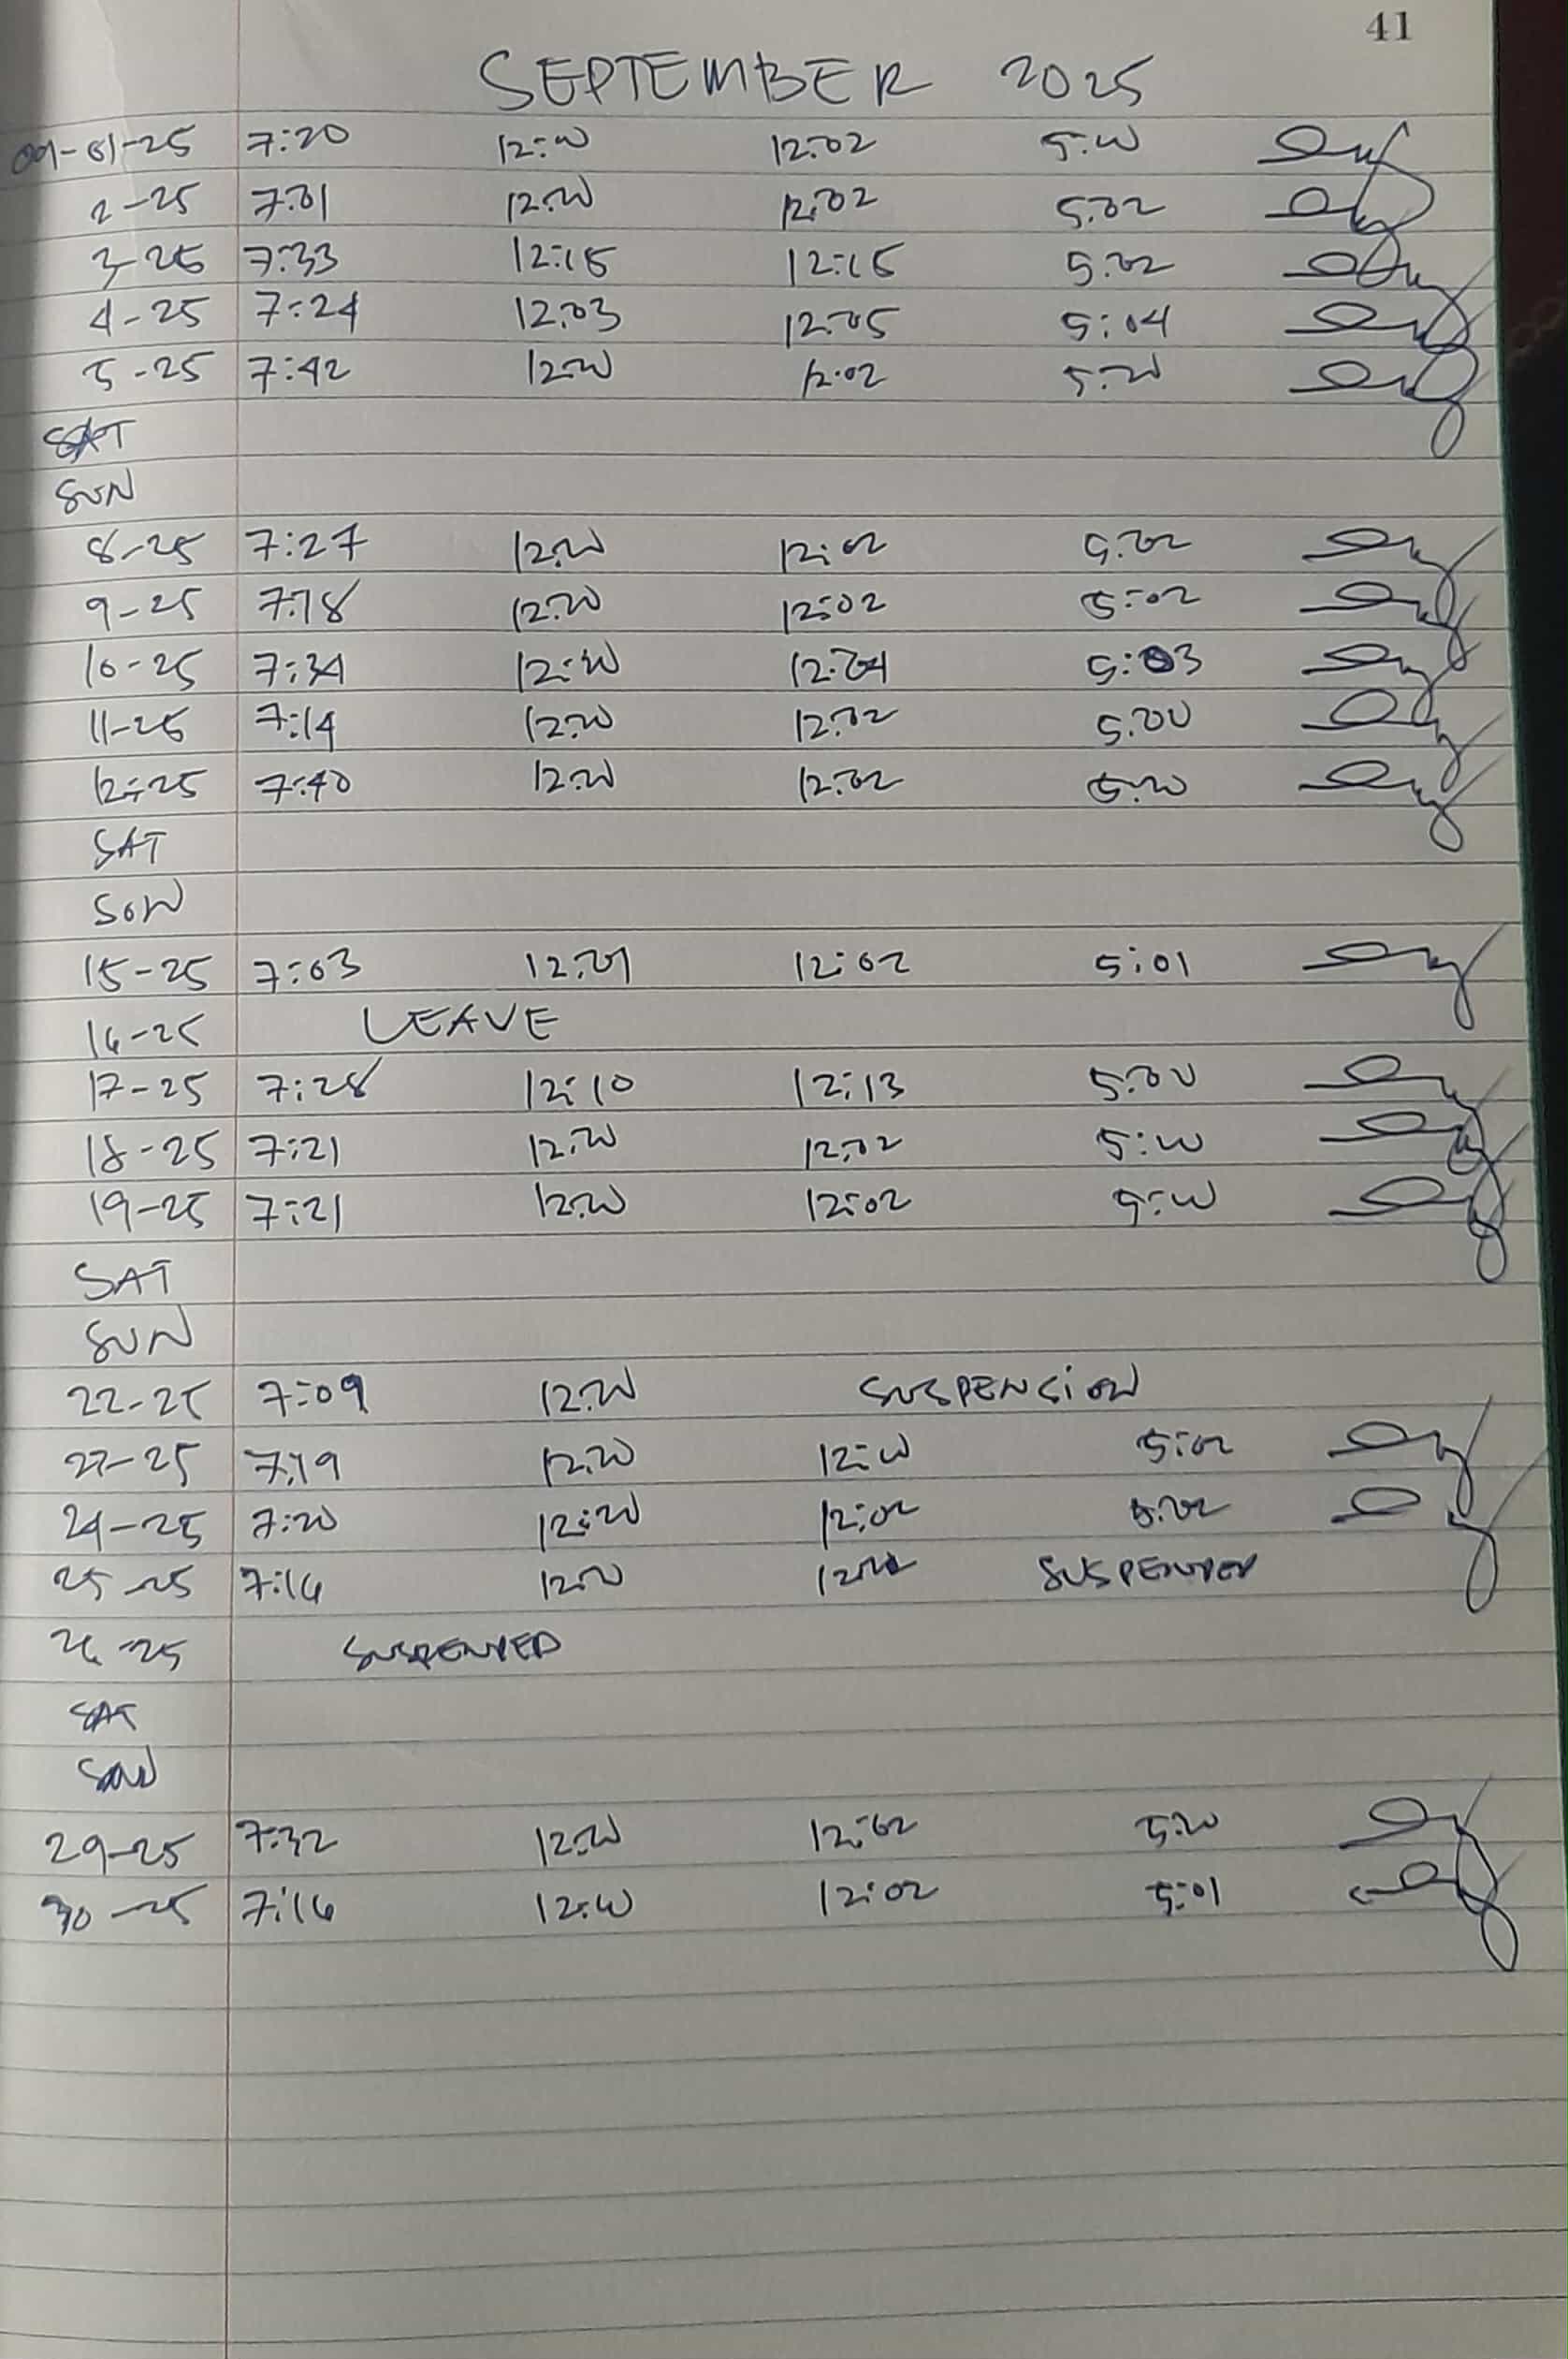 41
SEPTEMBER 2025
09-01-25 7:20 12:00 12:02 5:00
2-25 7:01 12:00 12:02 5:02
3-25 7:33 12:15 12:15 5:02
4-25 7:24 12:03 12:05 5:04
5-25 7:42 12:00 12:02 5:00
SAT
SUN
8-25 7:27 12:00 12:02 5:02
9-25 7:18 12:00 12:02 5:02
10-25 7:34 12:00 12:04 5:03
11-25 7:14 12:00 12:02 5:00
12-25 7:40 12:00 12:02 5:00
SAT
SUN
15-25 7:03 12:01 12:02 5:01
16-25 LEAVE
17-25 7:28 12:10 12:13 5:00
18-25 7:21 12:00 12:02 5:00
19-25 7:21 12:00 12:02 5:00
SAT
SUN
22-25 7:09 12:00 SUSPENSION
23-25 7:19 12:00 12:00 5:02
24-25 7:20 12:00 12:02 5:02
25-25 7:16 12:00 SUSPENDED
26-25 SUSPENDED
SAT
SUN
29-25 7:32 12:00 12:02 5:00
30-25 7:16 12:00 12:02 5:01